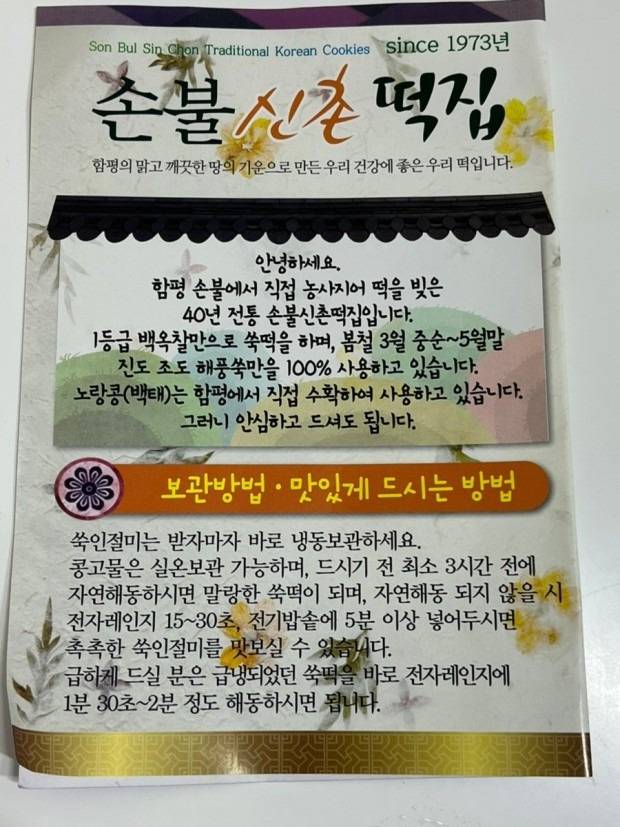 Son Bul Sin Chon Traditional Korean Cookies since 1973년
손불 신촌 떡집
함평의 맑고 깨끗한 땅의 기운으로 만든 우리 건강에 좋은 우리 떡입니다.
안녕하세요.
함평 손불에서 직접 농사지어 떡을 빚은
40년 전통 손불신촌떡집입니다.
1등급 백옥찰만으로 쑥떡을 하며, 봄철 3월 중순~5월말
진도 조도 해풍쑥만을 100% 사용하고 있습니다.
노랑콩(백태)는 함평에서 직접 수확하여 사용하고 있습니다.
그러니 안심하고 드셔도 됩니다.
보관방법·맛있게 드시는 방법
쑥인절미는 받자마자 바로 냉동보관하세요.
콩고물은 실온보관 가능하며, 드시기 전 최소 3시간 전에
자연해동하시면 말랑한 쑥떡이 되며, 자연해동 되지 않을 시
전자레인지 15~30초, 전기밥솥에 5분 이상 넣어두시면
촉촉한 쑥인절미를 맛보실 수 있습니다.
급하게 드실 분은 급냉되었던 쑥떡을 바로 전자레인지에
1분 30초~2분 정도 해동하시면 됩니다.